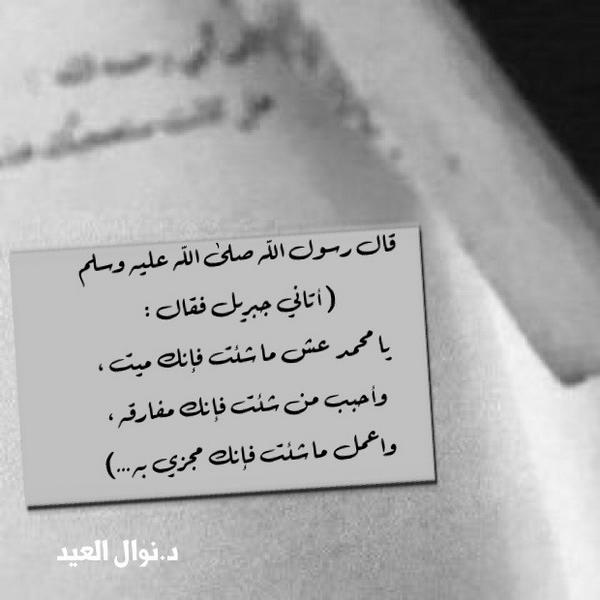 قال رسول اللّه صلىٰ اللّه عليه وسلم
( أتاني جبريل فقال :
يا محمد عش ما شئت فإنك ميت ،
وأحبب من شئت فإنك مفارقه ،
واعمل ما شئت فإنك مجزي به...)
د.نوال العيد